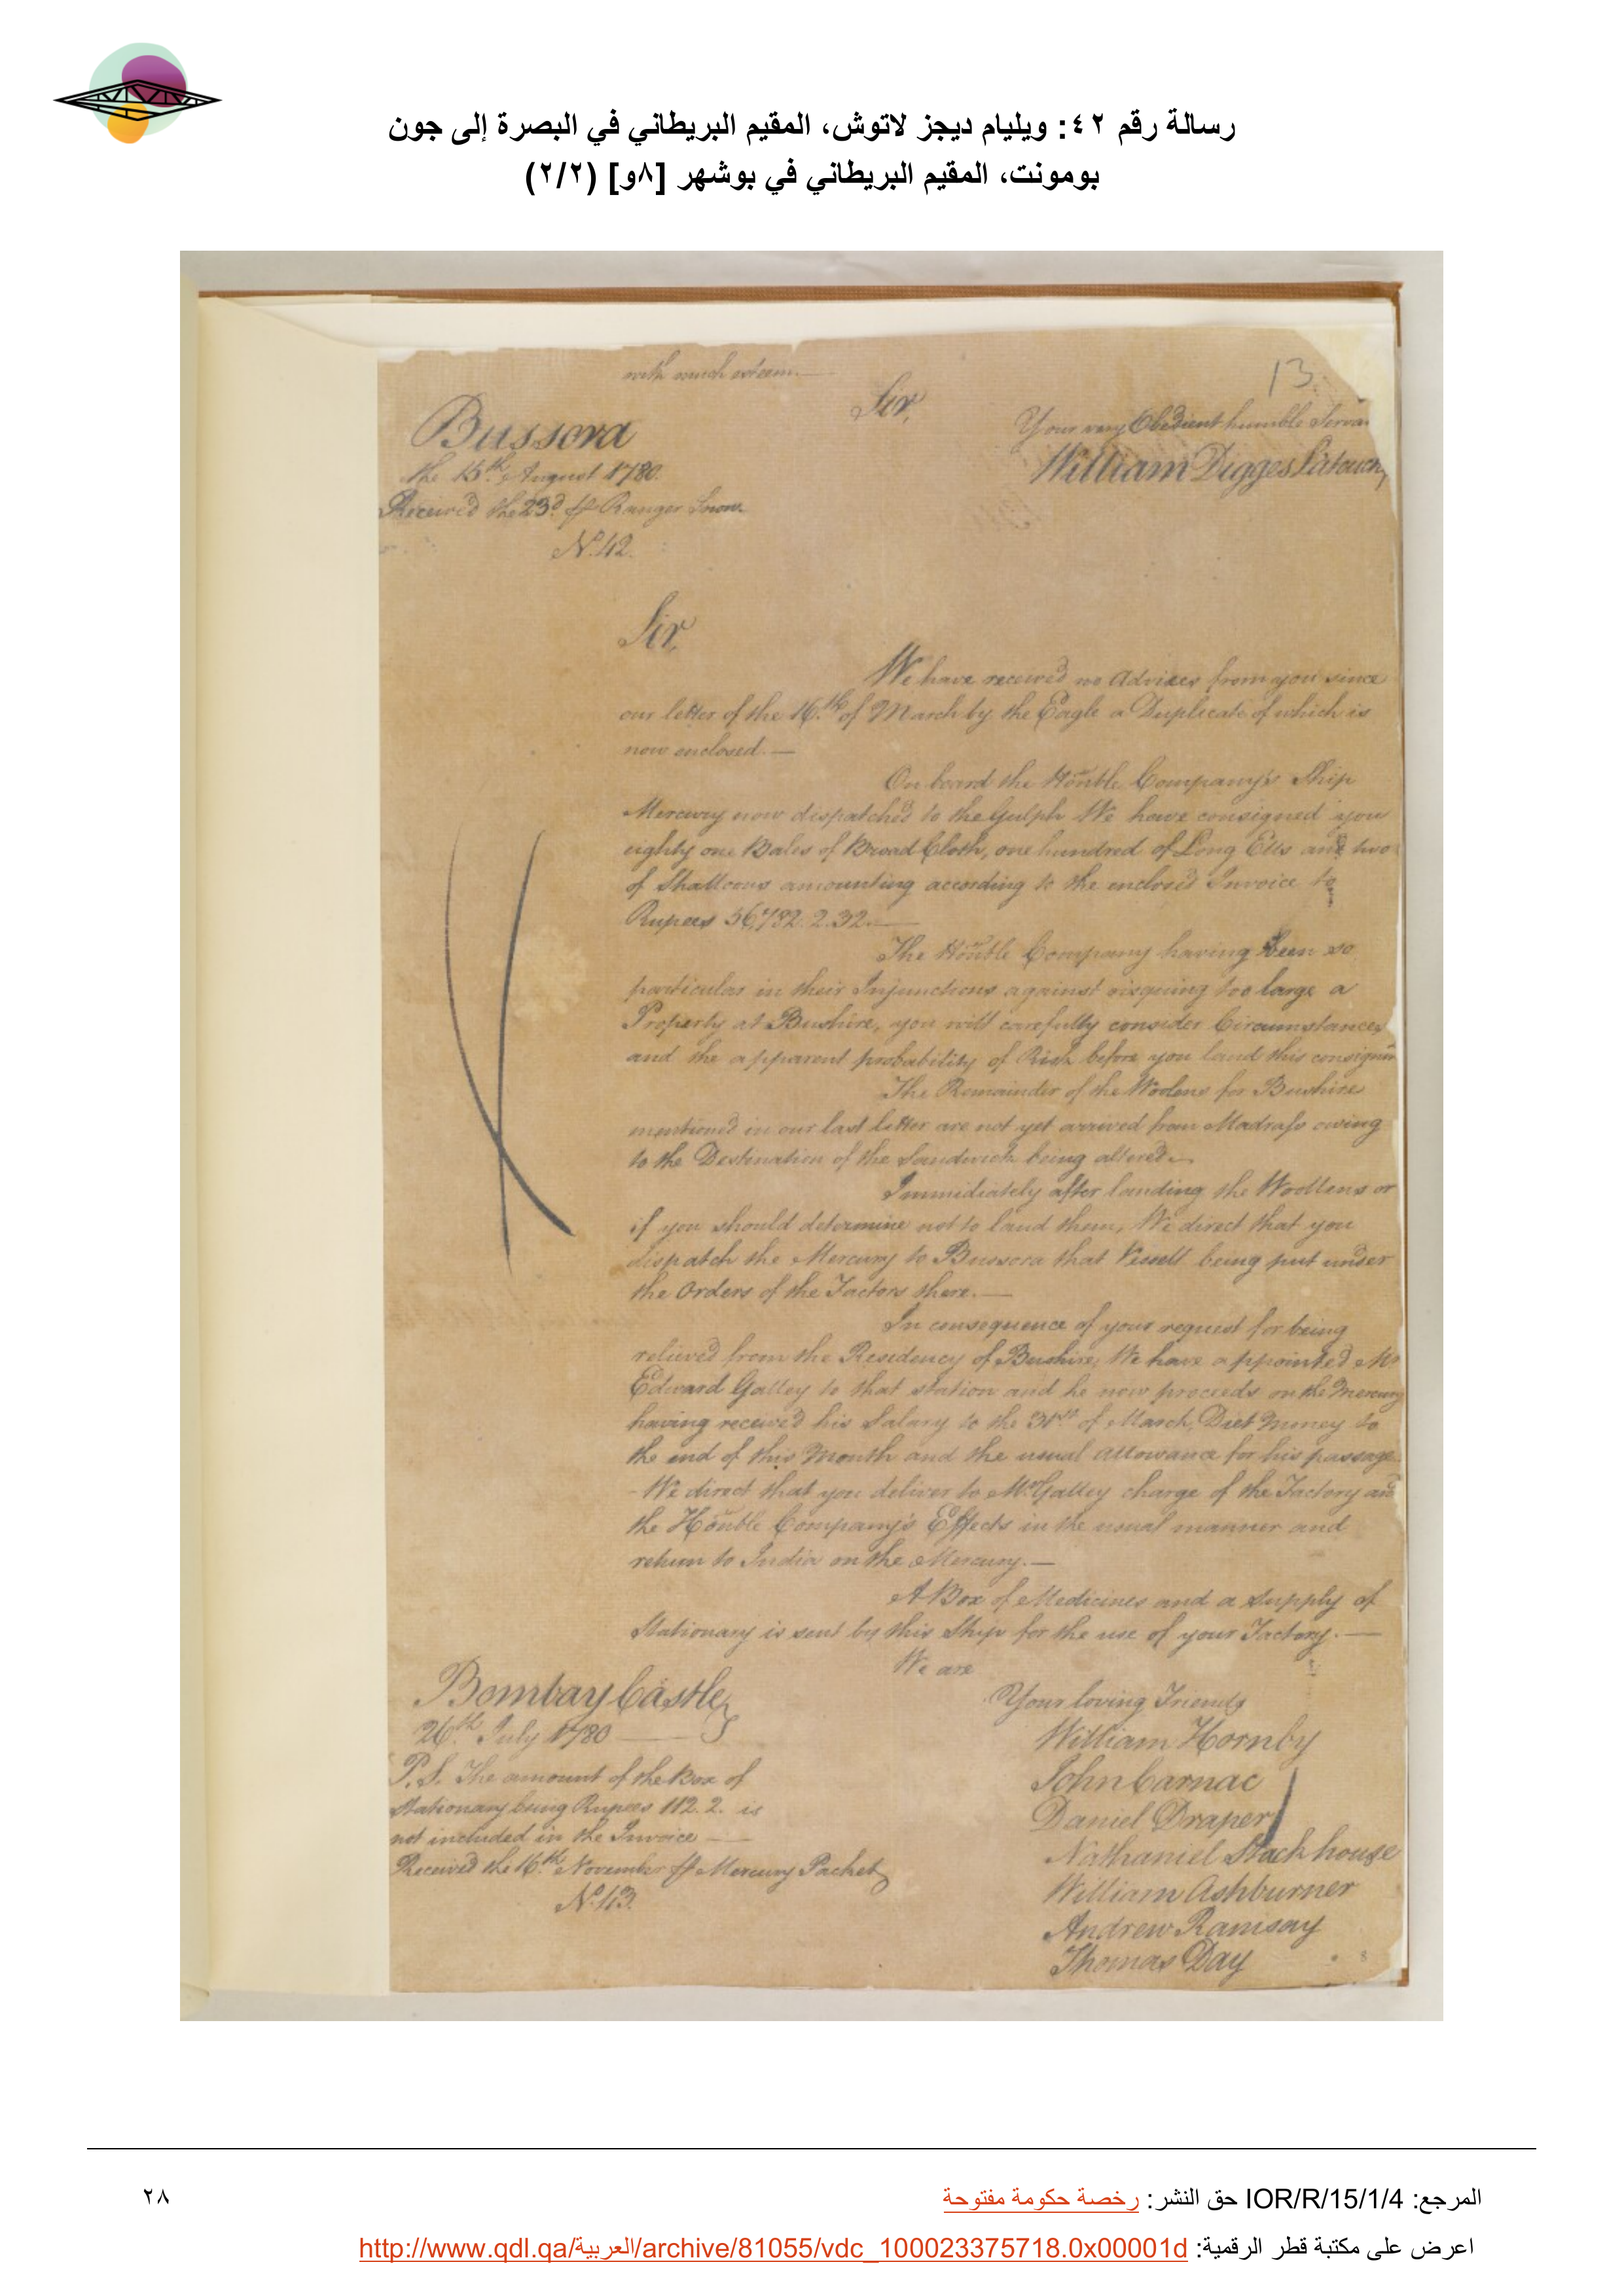 رسالة رقم ٤٢: ويليام ديجز لاتوش، المقيم البريطاني في البصرة إلى جون
بومونت، المقيم البريطاني في بوشهر [٨و] (٢/٢)
with much esteem.—
13
Sir,
Your very Obedient humble Serva
William Digges Latouch
Bussora
the 15th. August 1780.
Received the 23d. Ranger Snow.
No. 42.
Sir,
We have received no Advices from you since
our letter of the 16.th of March by the Eagle a Duplicate of which is
now enclosed.—
On board the Honble. Company's Ship
Mercury now dispatched to the Gulph We have consigned you
eighty one Bales of Broad Cloth, one hundred of Long Ells and two
of Shalloons amounting according to the enclosed Invoice to
Rupees 56,782. 2. 32.—
The Honble Company having been so
particular in their Injunctions against risquing too large a
Property at Bushire, you will carefully consider Circumstances
and the apparent probability of Risk before you land this consignm
The Remainder of the Woolens for Bushire
mentioned in our last letter are not yet arrived from Madrass owing
to the Destination of the Sandwich being altered.—
Immediately after landing the Woollens or
if you should determine not to land them, We direct that you
dispatch the Mercury to Bussora that Vessell being put under
the Orders of the Factors there.—
In consequence of your request for being
relieved from the Residency of Bushire, We have appointed Mr
Edward Galley to that station and he now proceeds on the Mercury
having received his Salary to the 31st of March, Diet Money to
the end of this Month and the usual allowance for his passage
- We direct that you deliver to Mr. Galley charge of the Factory and
the Honble Company's Effects in the usual manner and
return to India on the Mercury.—
A Box of Medicines and a supply of
Stationary is sent by this Ship for the use of your Factory.—
We are
Your loving Friends
Bombay Castle,
26th. July 1780
William Hornby
John Carnac
Daniel Draper
Nathaniel Stackhouse
William Ashburner
Andrew Ramsay
Thomas Day
P.S. The amount of the Box of
Stationary being Rupees 112. 2. is
not included in the Invoice —
Received the 16.th November Mercury Packet
No. 43.
المرجع: IOR/R/15/1/4 حق النشر: رخصة حكومة مفتوحة
٢٨
اعرض على مكتبة قطر الرقمية: http://www.qdl.qa/العربية/archive/81055/vdc_100023375718.0x00001d